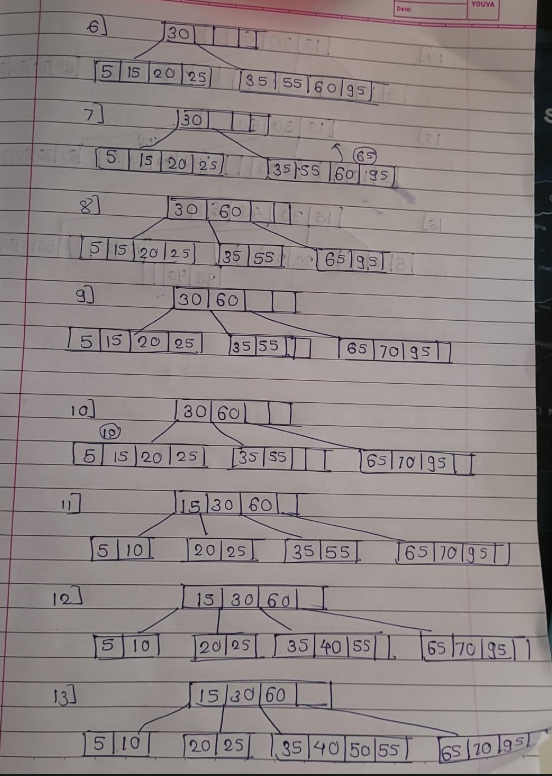 Date:
YOUVA
6]
30
5 15 20 25 35 55 60 95
7]
30
65
5 15 20 25 35 55 60 95
8]
30 60
5 15 20 25 35 55 65 95
9]
30 60
5 15 20 25 35 55 65 70 95
10]
30 60
10
5 15 20 25 35 55 65 70 95
11]
15 30 60
5 10 20 25 35 55 65 70 95
12]
15 30 60
5 10 20 25 35 40 55 65 70 95
13]
15 30 60
5 10 20 25 35 40 50 55 65 70 95